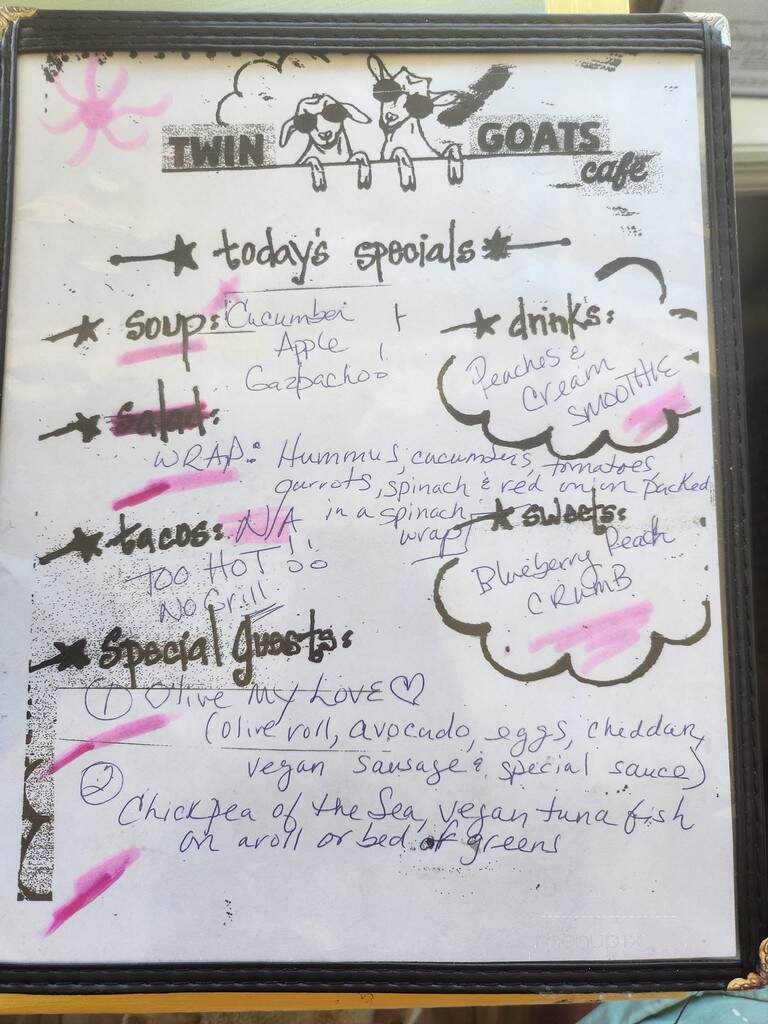 TWIN GOATS
café
today's specials
soup: Cucumber
Apple
Gazpacho!!
drink's:
Peaches &
Cream
SMOOTHIE
Salad:
WRAP: Hummus, cucumbers, tomatoes,
carrots, spinach & red onion packed
in a spinach
wrap
tacos: N/A
TOO HOT!!
No Grill
sweets:
Blueberry Peach
CRUMB
Special guests:
① Olive My Love ♡
(olive roll, avocado, eggs, cheddar,
vegan sausage & special sauce)
② Chickpea of the Sea, vegan tuna fish
on a roll or bed of greens